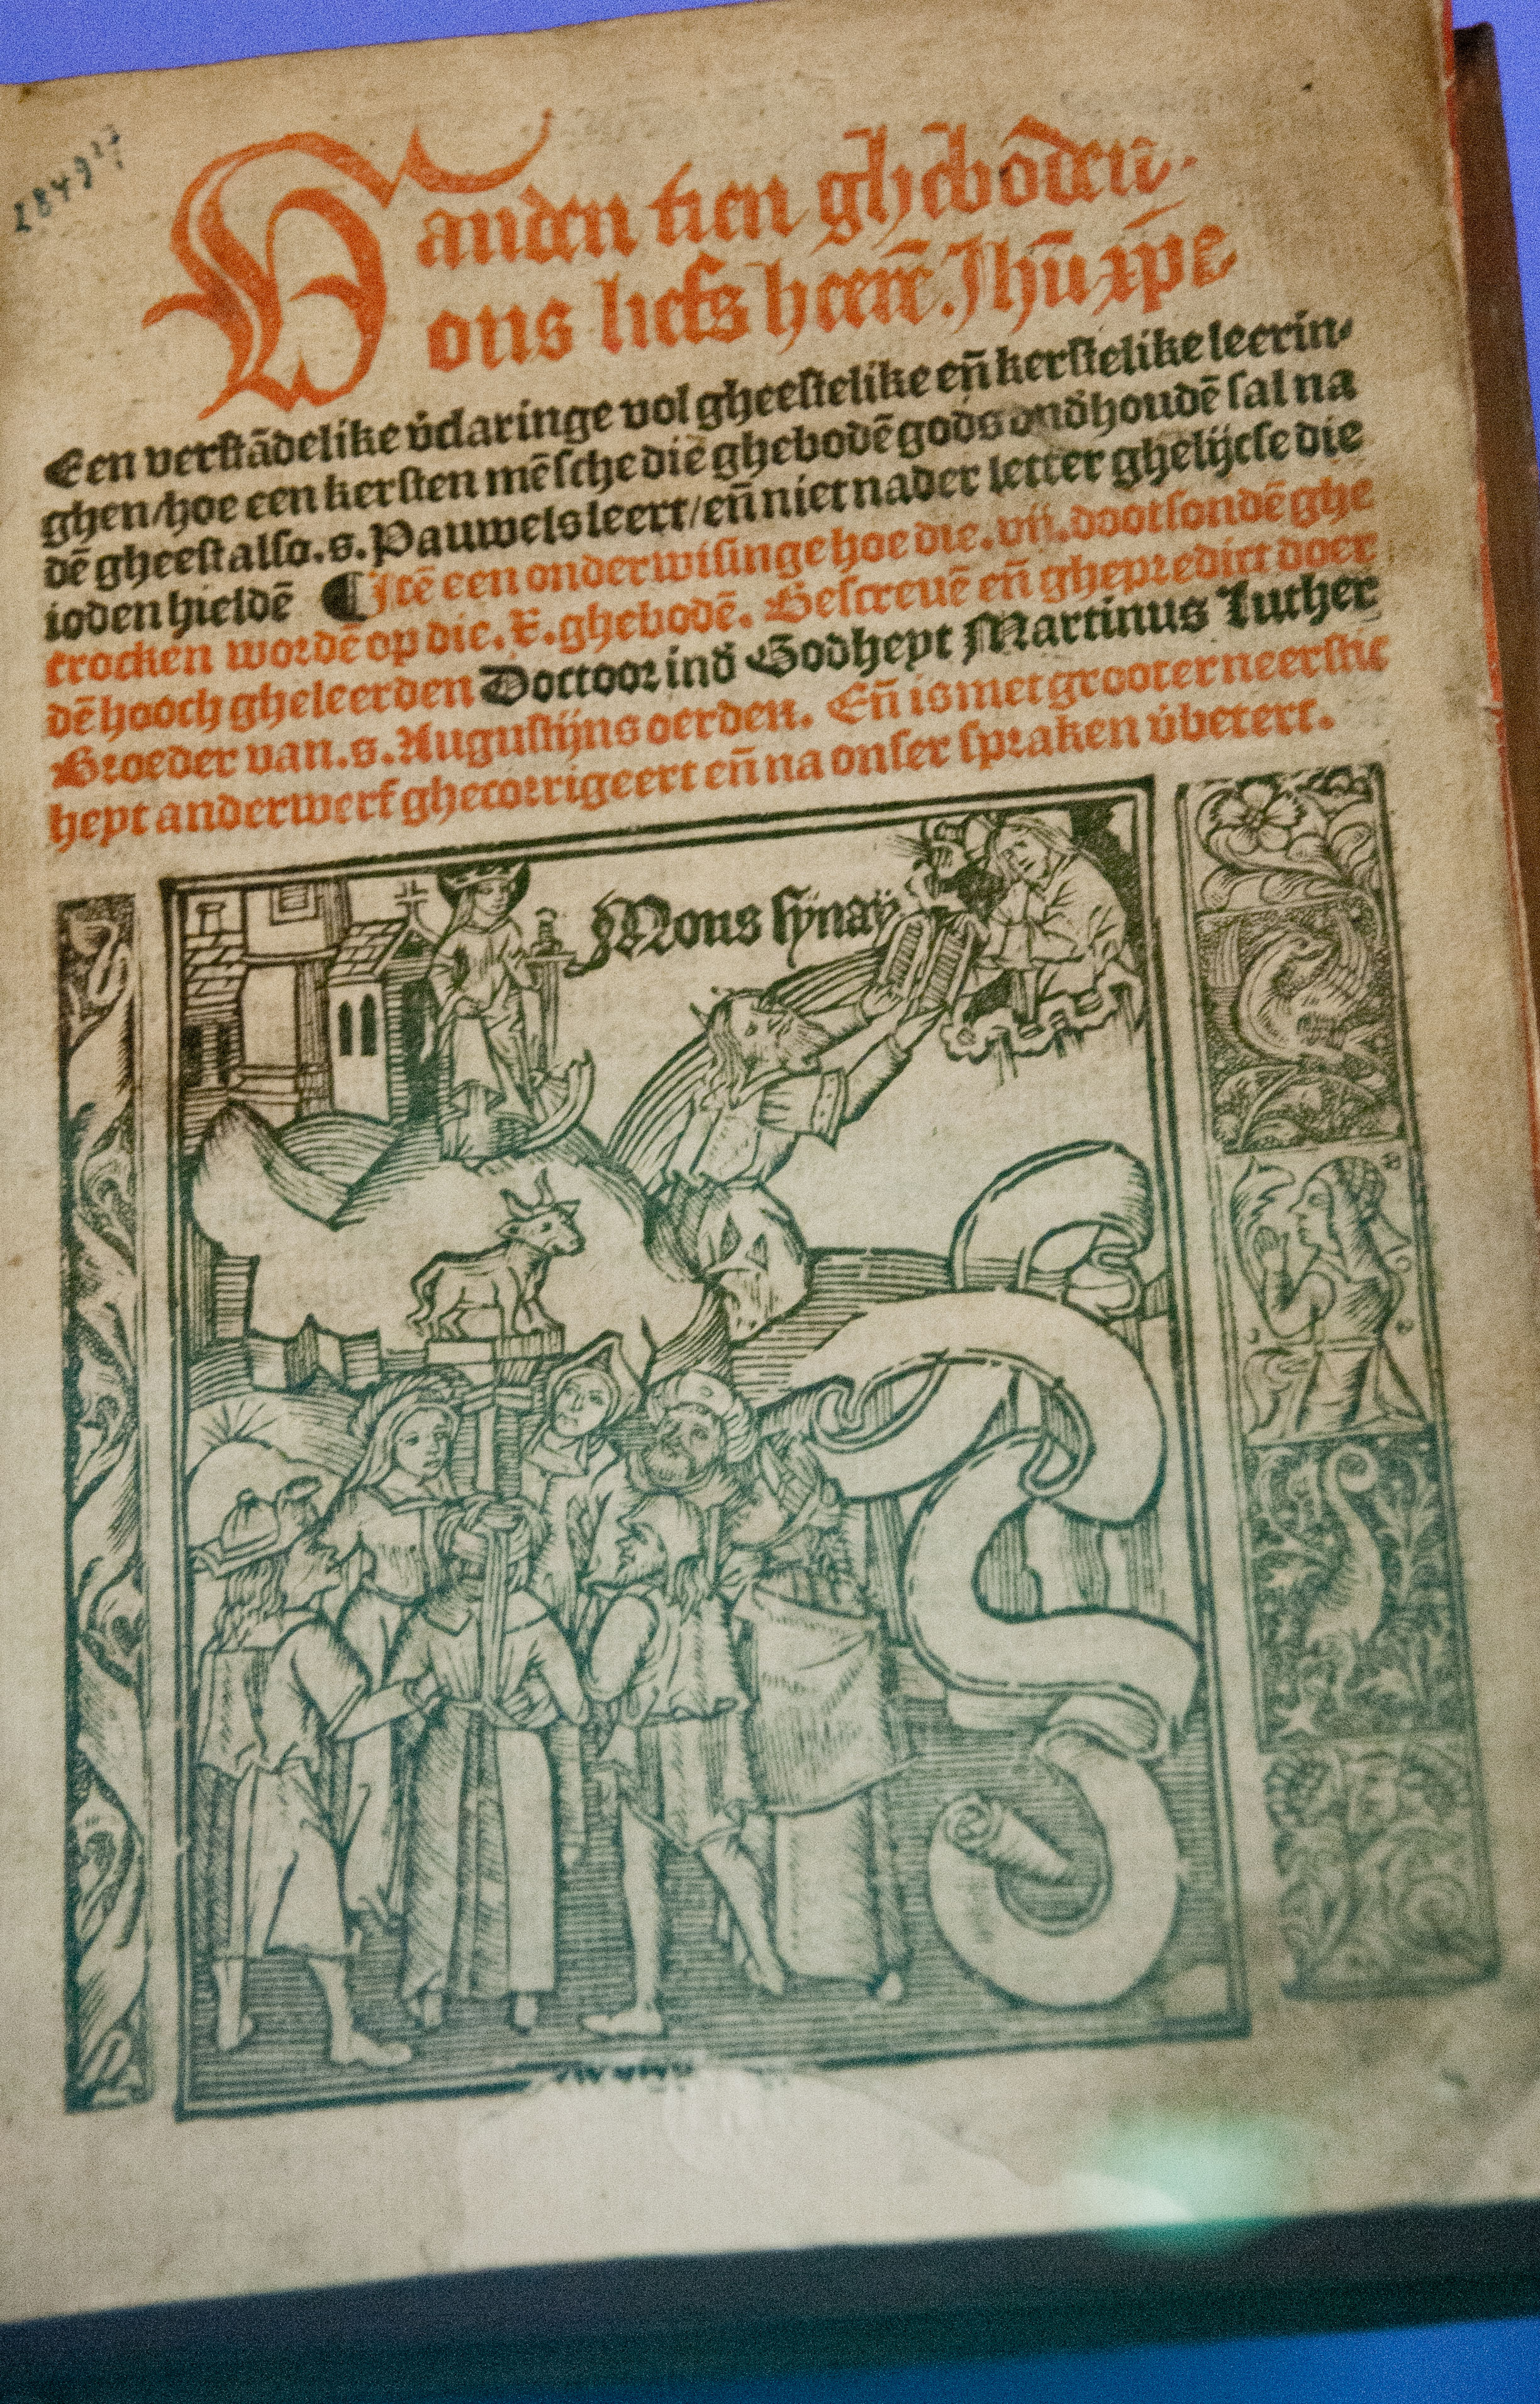 Vanden tien gheboden
ons liefs heerē. Jhū xp̄e
Een verstādelike v̄claringe vol gheestelike eñ kerstelike leerin⸗
ghen/hoe een kersten mēsche die ghebodē gods ond̄houdē sal na
dē gheest also.s.Pauwels leert/eñ niet na der letter ghelijcse die
ioden hieldē ¶ Itē een onderwisinge hoe die.vij.dootsondē ghe
trocken wordē op die.X.ghebodē. Gescreuē eñ ghepredict doer
dē hooch gheleerden Doctoor ind̄ Godheyt Martinus Luther
Broeder van.s.Augustijns oerden. Eñ is met grooter neerstic
heyt anderwerf ghecorrigeert eñ na onser spraken v̄betert.
Mons synay